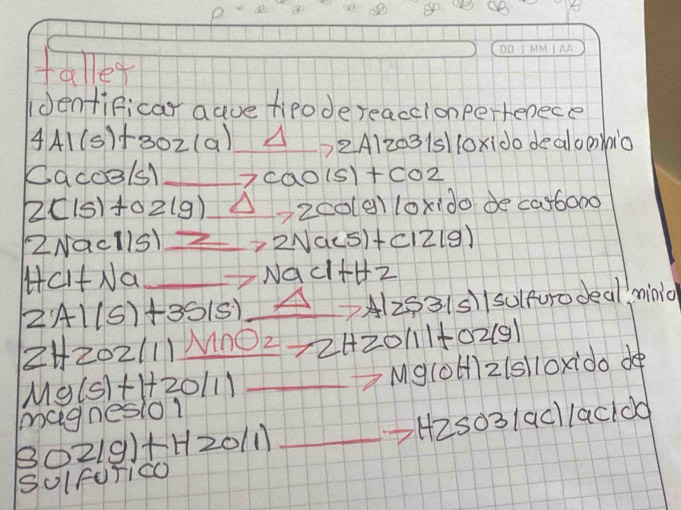 DD | MM | AA
taller
identificar aque tipo de reaccion pertenece
4Al(s)+3O2(g) Δ → 2Al2O3(s)(oxido de aluminio
CaCO3(s) → CaO(s)+CO2
2C(s)+O2(g) Δ → 2CO(g)(oxido de carbono
2NaCl(s) → 2Na(s)+Cl2(g)
HCl+Na → NaCl+H2
2Al(s)+3S(s) Δ → Al2S3(s)(sulfuro de aluminio
2H2O2(l) MnO2 → 2H2O(l)+O2(g)
Mg(s)+H2O(l) → Mg(OH)2(s)(oxido de
magnesio)
SO2(g)+H2O(l) → H2SO3(ac)(acido
sulfurico